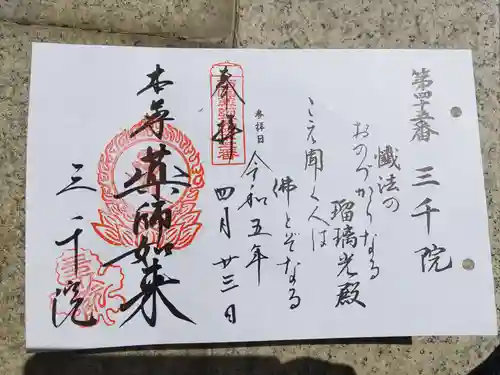 第四十五番 三千院
懺法の
おのづからなる
瑠璃光殿
こえ聞く人は
佛とぞなる
参拝日
令和五年
四月廿三日
奉拝
本尊 薬師如来
三千院